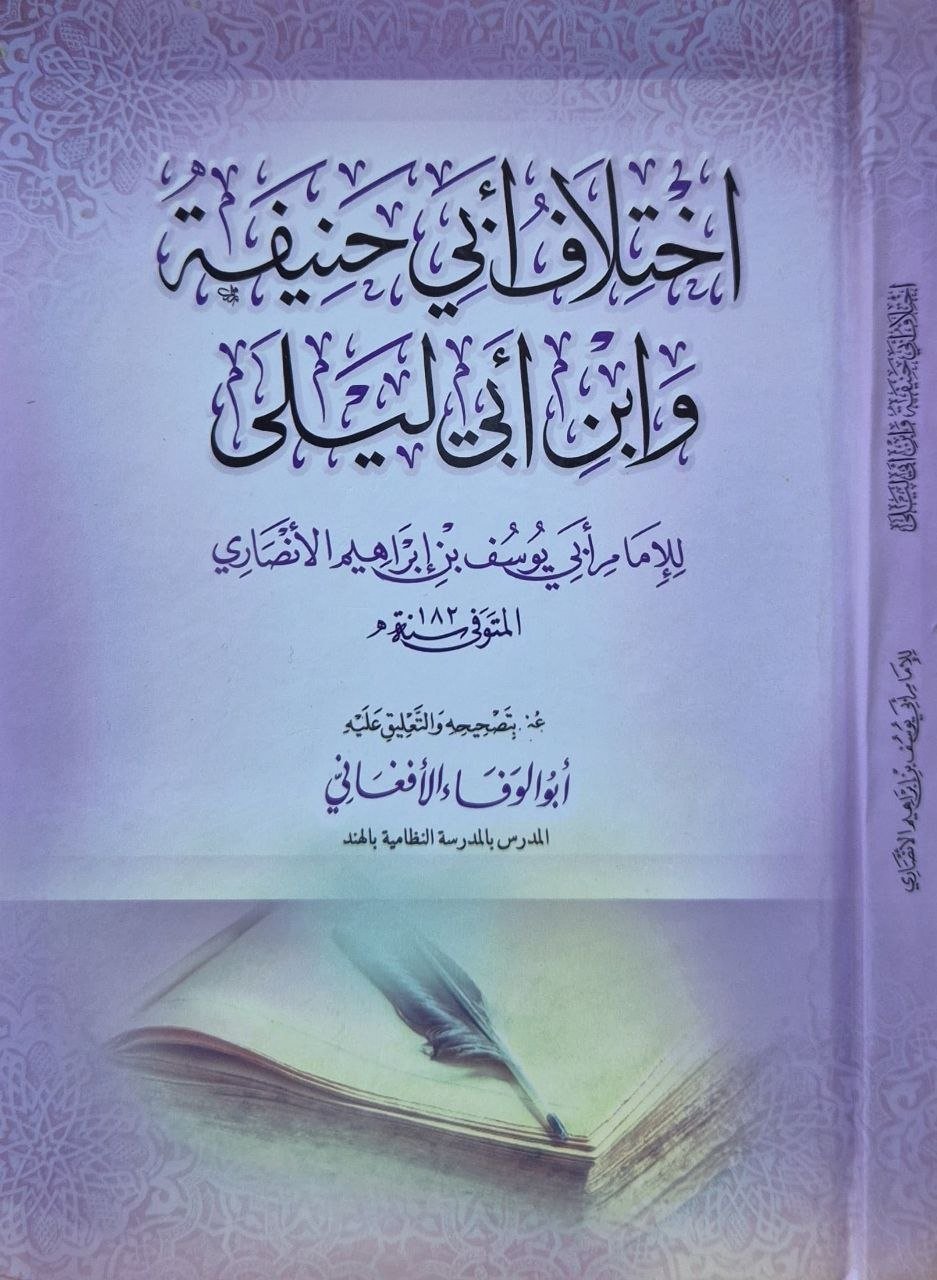 اخْتِلَافُ أَبِي حَنِيفَةَ
وَابْنِ أَبِي لَيْلَى
لِلإِمَامِ أَبِي يُوسُف بْنِ إِبْرَاهِيم الأَنْصَارِي
المتوفى سنة ١٨٢ هـ
عُنيَ بِتَصْحِيحِهِ وَالتَّعْلِيقِ عَلَيْهِ
أَبُو الوَفَاء الأَفْغَانِيّ
المدرس بالمدرسة النظامية بالهند
اخْتِلَافُ أَبِي حَنِيفَةَ وَابْنِ أَبِي لَيْلَى
لِلإِمَامِ أَبِي يُوسُف بْنِ إِبْرَاهِيم الأَنْصَارِي